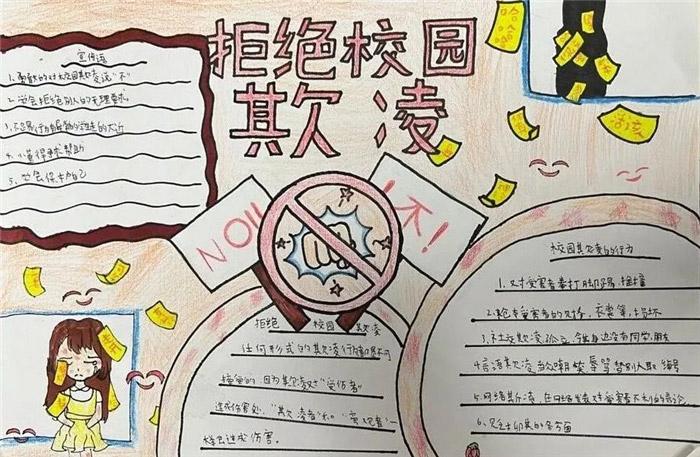 拒绝校园
欺凌
宣传语
1、勇敢的对校园欺凌说“不”
2、学会拒绝别人的无理要求
4、懂得寻求帮助
5、学会保护自己
NO!!!
不!
哈哈哈
活该
拒绝 校园 欺凌
任何形式的欺凌行为都是不可
接受的.因为欺凌对“受伤者”
造成伤害处,“欺凌者”和“旁观者”一
样会造成伤害.
校园欺凌的行为
1、对受害者拳打脚踢、推撞
2、抢走受害者的财物、衣裳等,损坏
3、社交欺凌,孤立,令其身边没有同学朋友
4言语欺凌 如嘲笑 辱骂 替别人取 绰号
5、网络欺凌,在网络发表对受害者不利的言论